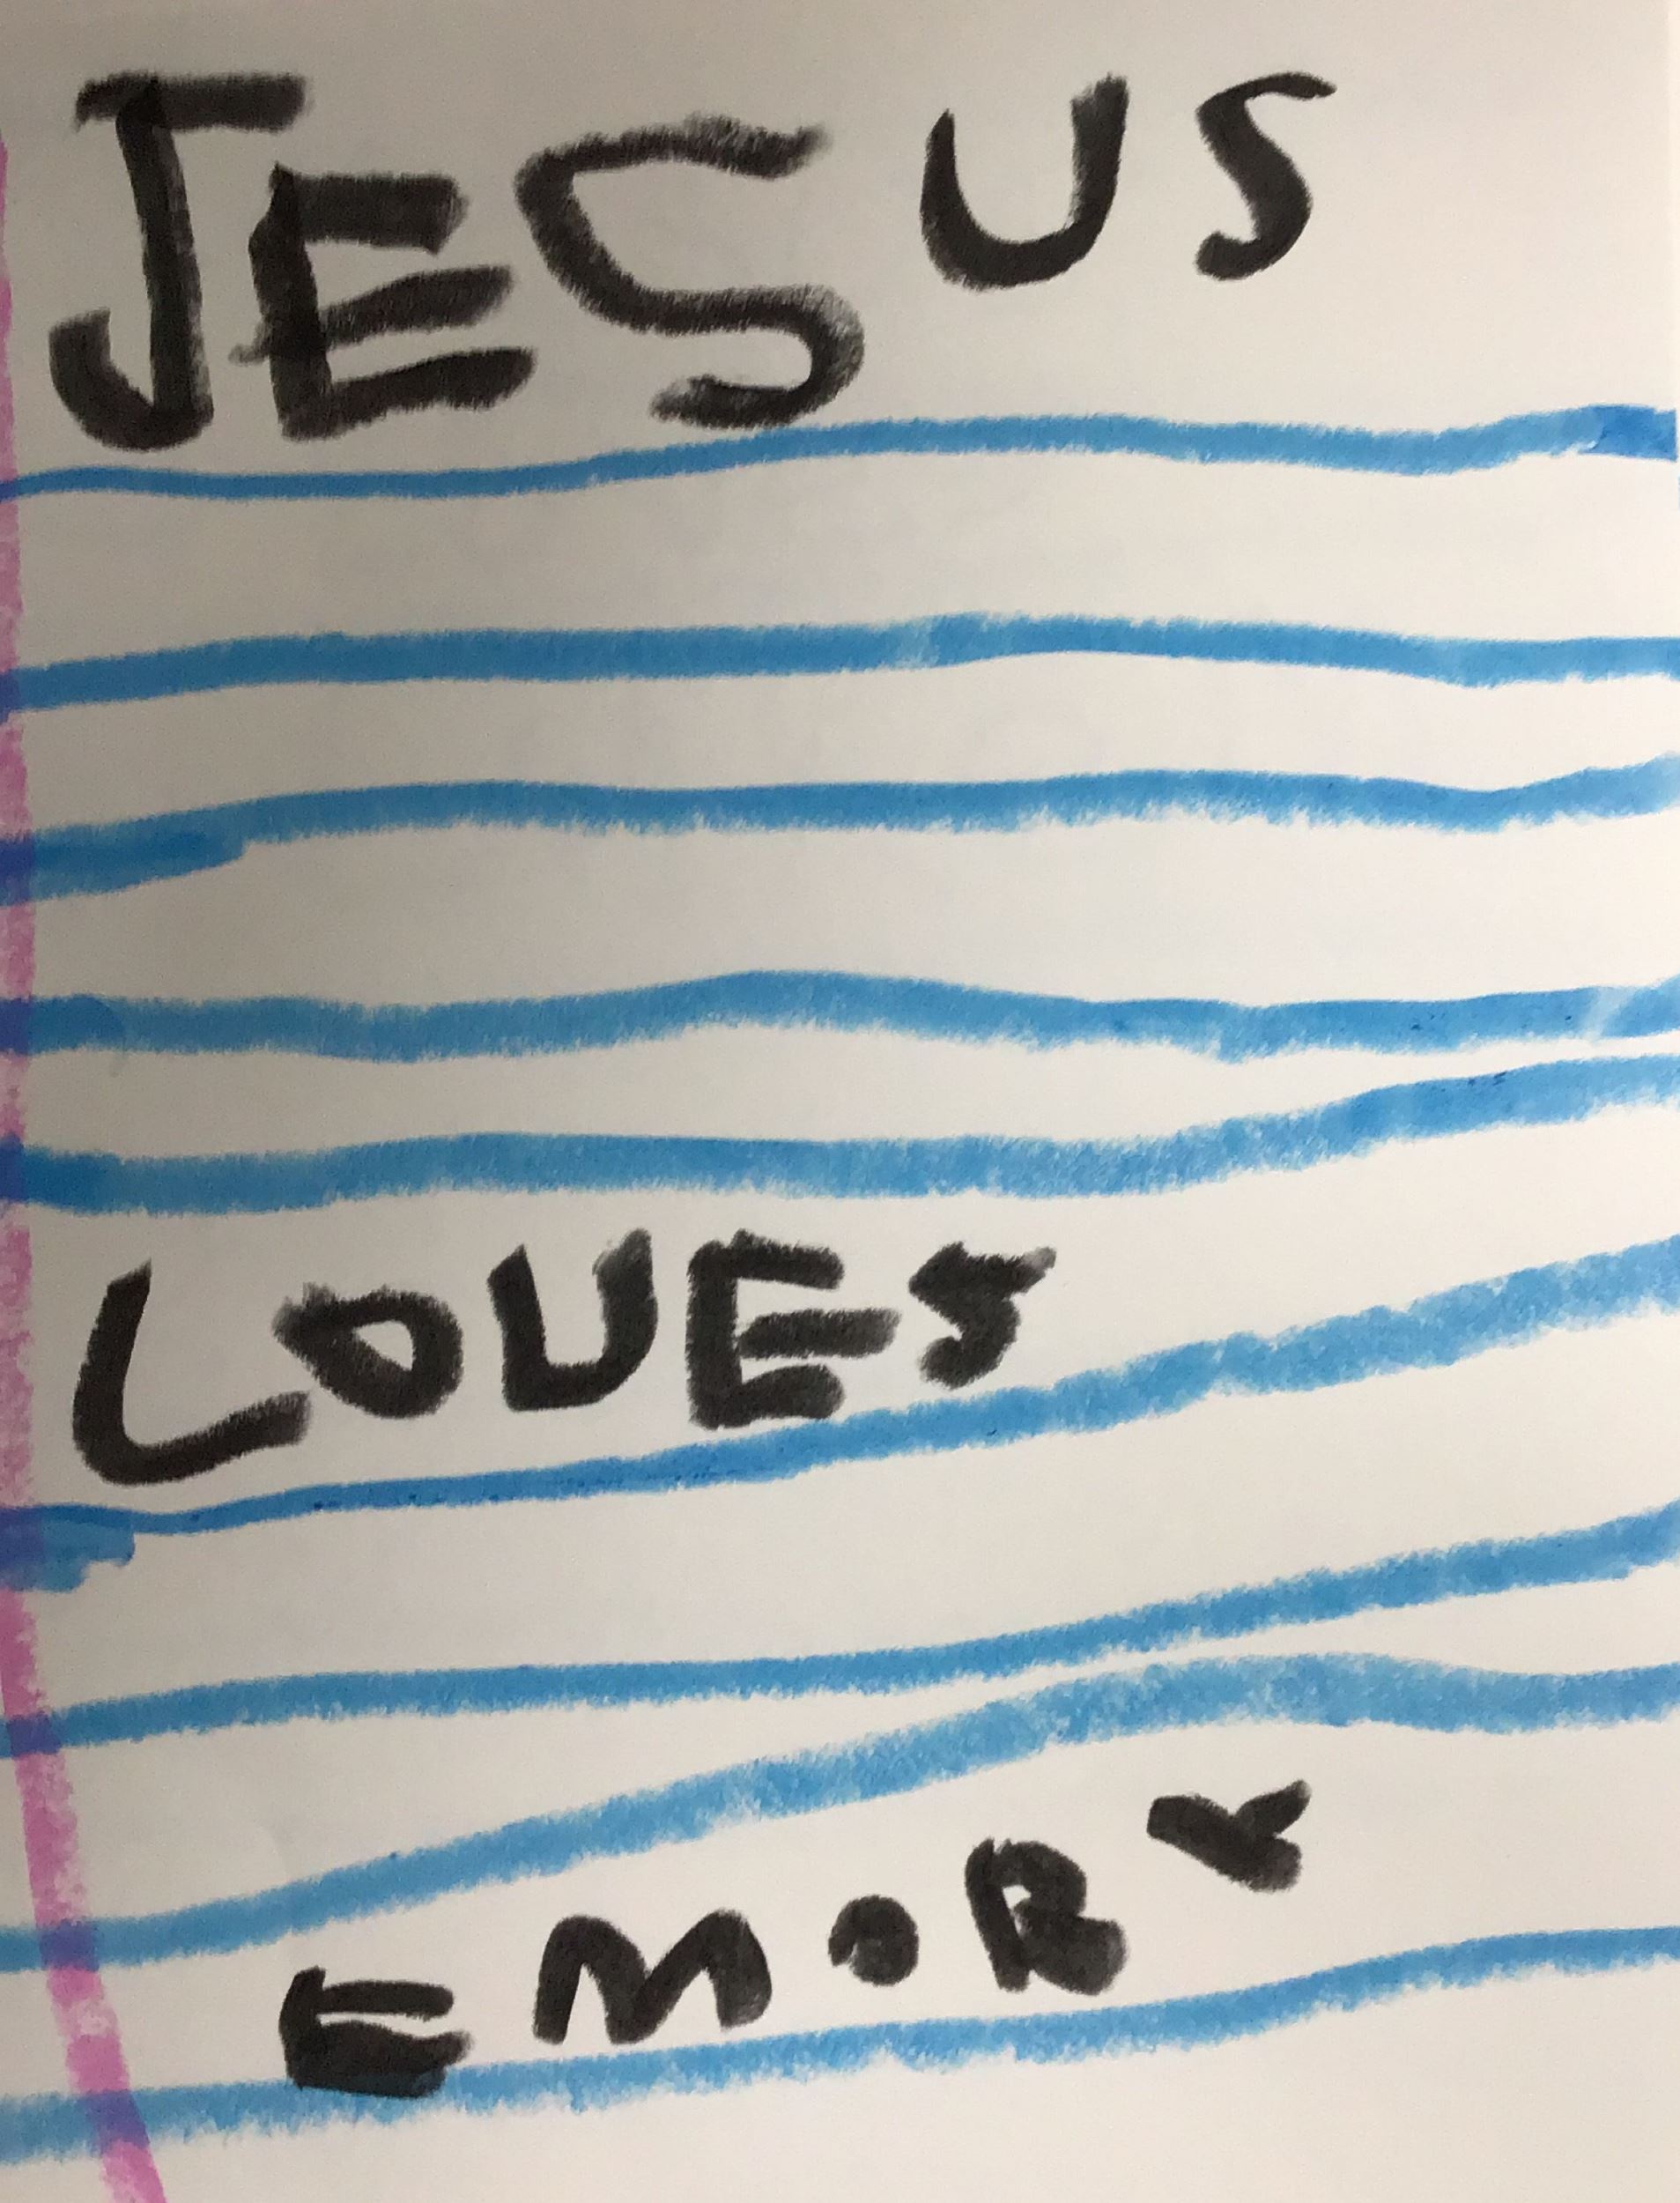 JESUS
LOVES
EMORY